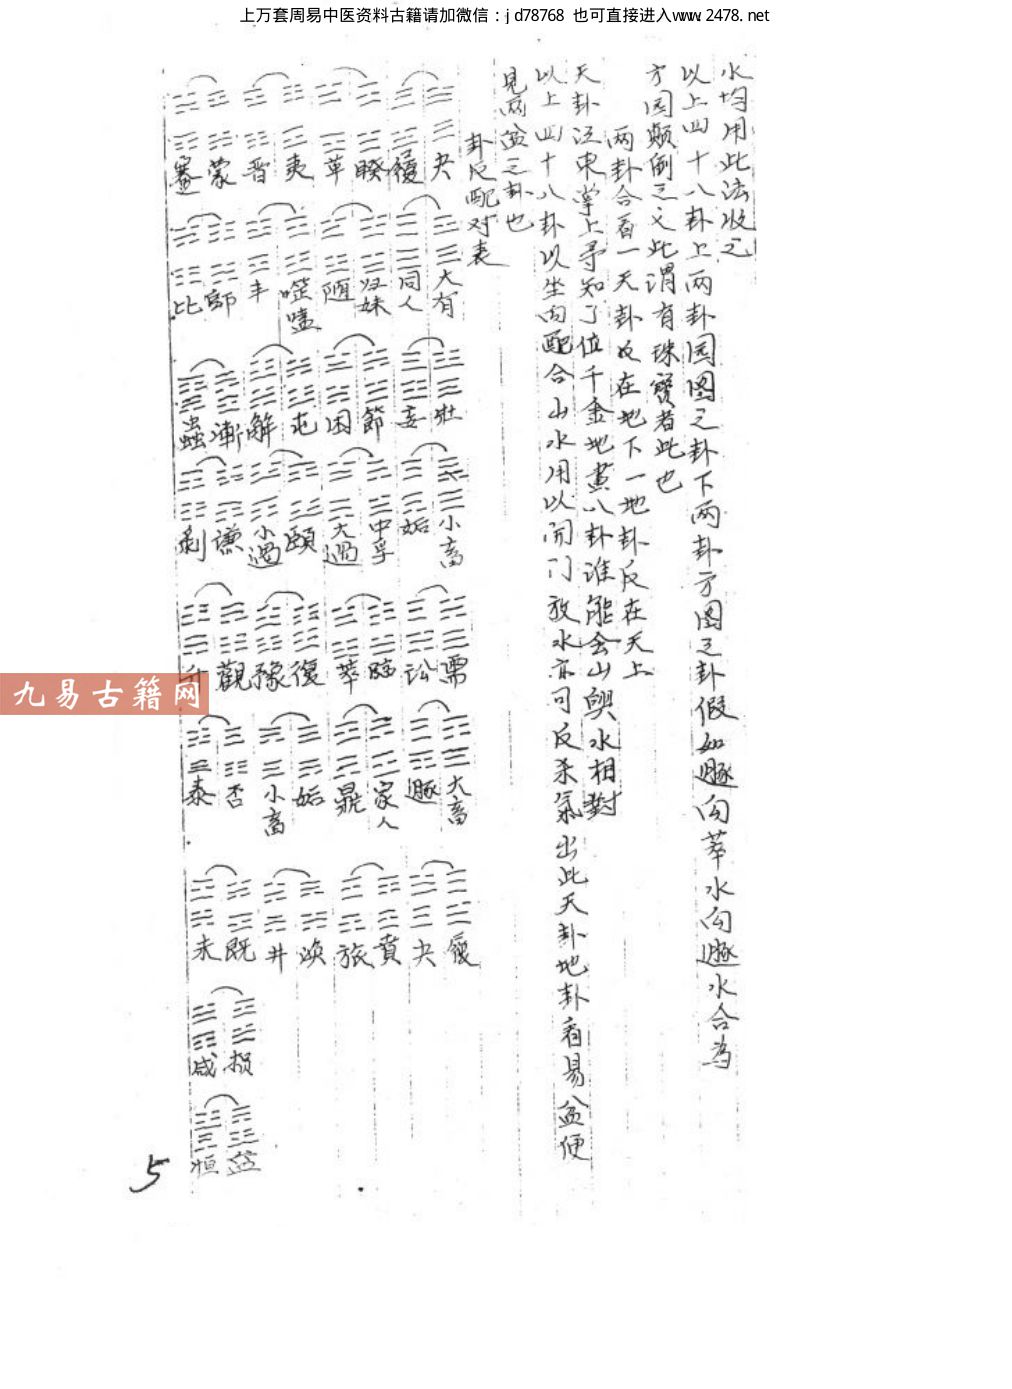 上万套周易中医资料古籍请加微信：jd78768 也可直接进入www.2478.net
水均用此法收之
以上四十八卦上两卦园图之卦下两卦方图之卦假如遯向萃水向遯水合為
方园颠倒之义此谓有珠寶者此也
两卦合看一天卦反在地下一地卦反在天上
天卦江東掌上寻知了位千金地画八卦谁能会山與水相對
以上四十八卦以坐向配合山水用以開门放水亦可反杀氣出此天卦地卦看易盆便
見兩盆之卦也
卦反配对表
夬 履 睽 革 夷 晋 蒙 蹇
大有 同人 归妹 随 噬嗑 丰 師 比
壮 妄 節 困 屯 解 漸 蠱
小畜 姤 中孚 大過 頤 小過 谦 剝
需 讼 臨 萃 復 豫 觀 升
大畜 遯 家人 鼎 姤 小畜 否 泰
履 夬 賁 旅 渙 井 既 未
损 咸
益 恒
5
九易古籍网